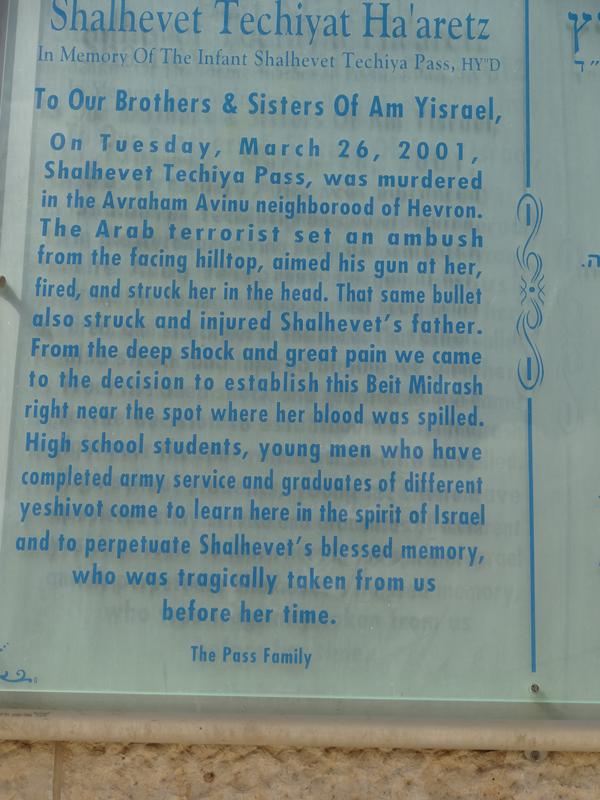 Shalhevet Techiyat Ha'aretz
In Memory Of The Infant Shalhevet Techiya Pass, HY"D
To Our Brothers & Sisters Of Am Yisrael,
On Tuesday, March 26, 2001,
Shalhevet Techiya Pass, was murdered
in the Avraham Avinu neighborood of Hevron.
The Arab terrorist set an ambush
from the facing hilltop, aimed his gun at her,
fired, and struck her in the head. That same bullet
also struck and injured Shalhevet's father.
From the deep shock and great pain we came
to the decision to establish this Beit Midrash
right near the spot where her blood was spilled.
High school students, young men who have
completed army service and graduates of different
yeshivot come to learn here in the spirit of Israel
and to perpetuate Shalhevet's blessed memory,
who was tragically taken from us
before her time.
The Pass Family